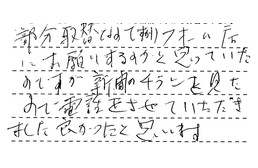 部分取替なので別フォーム店
にお願いするのかと思っていた
のですが新聞のチラシを見た
ので電話をさせていただき
ました良かったと思います